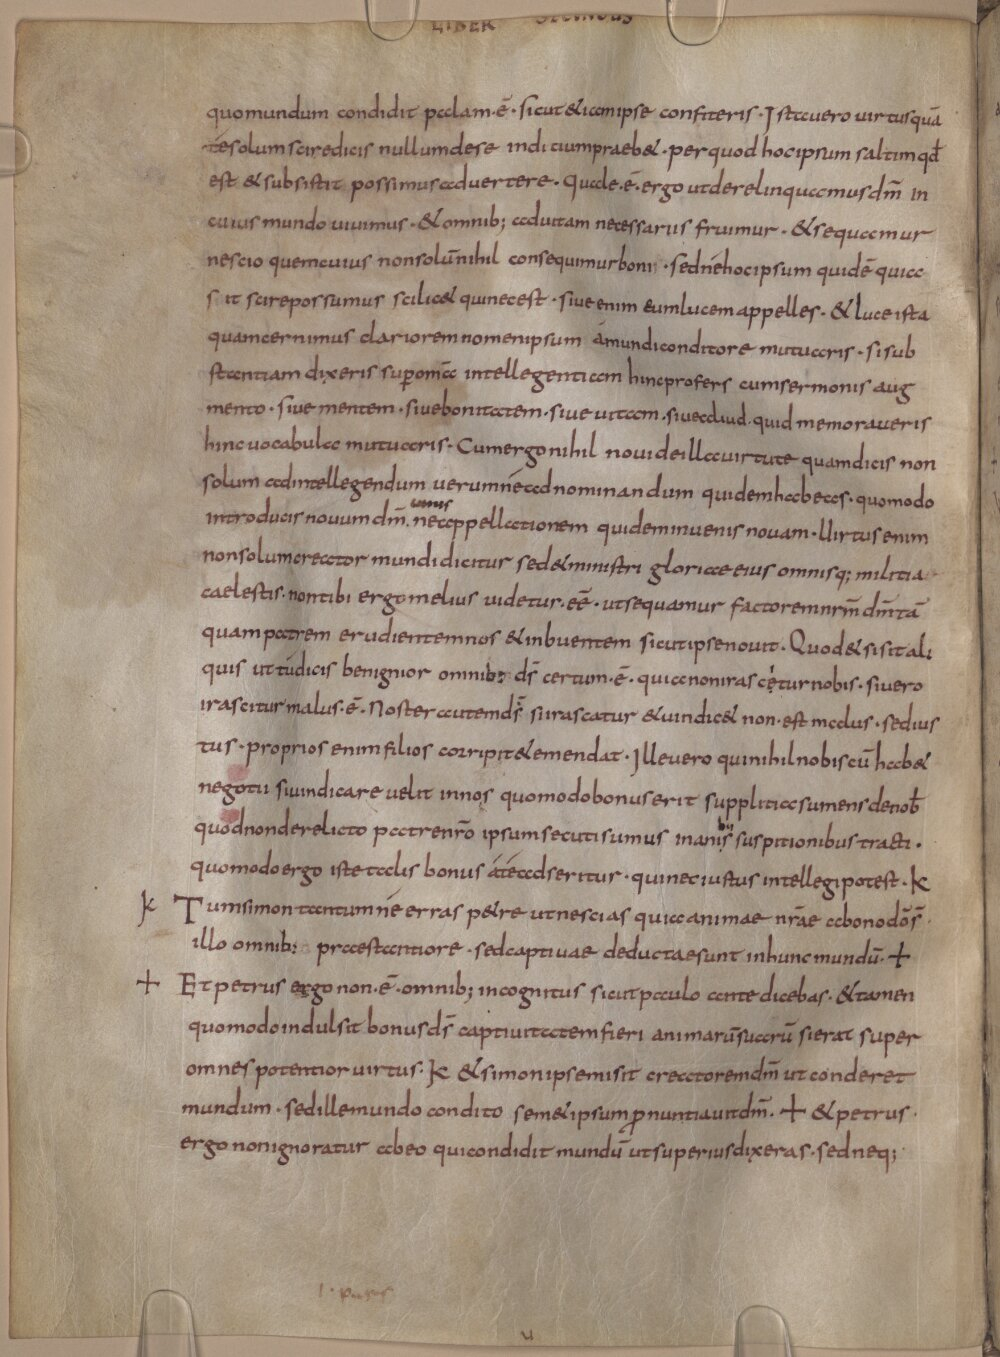 LIBER SECUNDUS
quo mundum condidit palam·ē· sicut & iam ipse confiteris· Ista uero uirtus quā
té solum scire dicis nullum de se inditium praeb&· per quod hoc ipsum saltim qđ
est & subsistit possimus aduertere· Quale·ē· ergo ut derelinquamus dm̄ in
cuius mundo uiuimus· & omnib; ad uitam necessariis fruimur· & sequamur
nescio quem cuius non solū nihil consequimur boni· sed né hoc ipsum quidē quia
sit scire possumus scilic& qui nec est· siue enim eum lucem appelles· & luce ista
quam cernimus clariorem nomen ipsum á mundi conditore mutuaris· si sub
stantiam dixeris sup omēa intellegentiam hinc profers cum sermonis aug
mento· siue mentem· siue bonitatem· siue uitam· siue aliud· quid memoraveris
hinc uocabula mutuaris· Cum ergo nihil noui de illa uirtute quam dicis non
solum ad intellegendum uerum né ad nominandum quidem habeas· quomodo
introducis nouum dm̄· cuius nec appellationem quidem inuenis nouam· Uirtus enim
non solum creator mundi dicitur sed & ministri gloriae eius omnisq; militia
caelestis· non tibi ergo melius uidetur·eē· ut sequamur factorem nrm̄ dm̄ tā
quam patrem erudientem nos & inbuentem sicut ipse nouit· Quod & si sit ali
quis ut tú dicis benignior omnib; ds̄ certum·ē· quia non irascetur nobis· si uero
irascitur malus·ē· Noster autem ds̄ si irascatur & uindic& non·est malus· sed ius
tus· proprios enim filios corripit & emendat· Ille uero qui nihil nobiscū hab&
negotii si uindicare uelit in nos quomodo bonus erit supplitia sumens de nob̄
quod non derelicto patre nrō ipsum secuti sumus inanis bij suspitionibus tracti·
quomodo ergo iste talis bonus áté adseritur· qui nec iustus intellegi potest· K
K Tum simon tantum né erras petre ut nescias quia animae nrāe a bono dō s̄
illo omnib; praestantiore· sed captiuae deductae sunt in hunc mundū· +
+ Et petrus ergo non·ē· omnib; incognitus sicut paulo ante dicebas· & tamen
quomodo indulsit bonus ds̄ captiuitatem fieri animarū suarū si erat super
omnes potentior uirtus· K & simon ipse misit creatorem dm̄ ut conderet
mundum· sed ille mundo condito semet ipsum pnuntiauit dm̄· + & petrus·
ergo non ignoratur ab eo qui condidit mundū ut superius dixeras· sed neq;
u